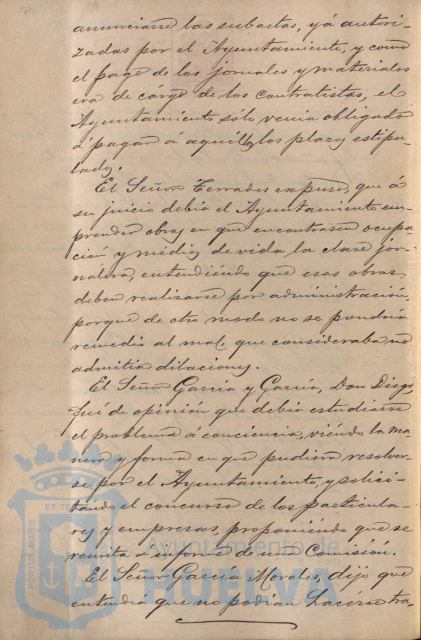 anunciarse las subastas, yá autori-
zadas por el Ayuntamiento, y como
el pago de los jornales y materiales
era de cárgo de los Contratistas, el
Ayuntamiento sólo venia obligado
á pagar á aquéllos los plazos estipu-
lados.
El Señor Terrades expuso, que á
su juicio debia el Ayuntamiento em-
prender obras en que encontrasen ocupa-
ción y médios de vida la clase jor-
nalera, entendiendo que esas obras
deben realizarse por administración,
porque de otro modo no se pondria
remedio al mal, que consideraba no
admitia dilaciones.
El Señor Garcia y Garcia, Don Diego,
fué de opinión que debia estudiarse
el problema á conciencia, viendo la ma-
nera y forma en que pudiera resolver-
se por el Ayuntamiento, y solici-
tando el concurso de los particula-
res y empresas, proponiendo que se
remita á informe de una Comisión.
El Señor Garcia Morales, dijo que
entendia que no podian hacerse tra-
PORTUS MARIS
ET TE
Ayuntamiento de
HUELVA